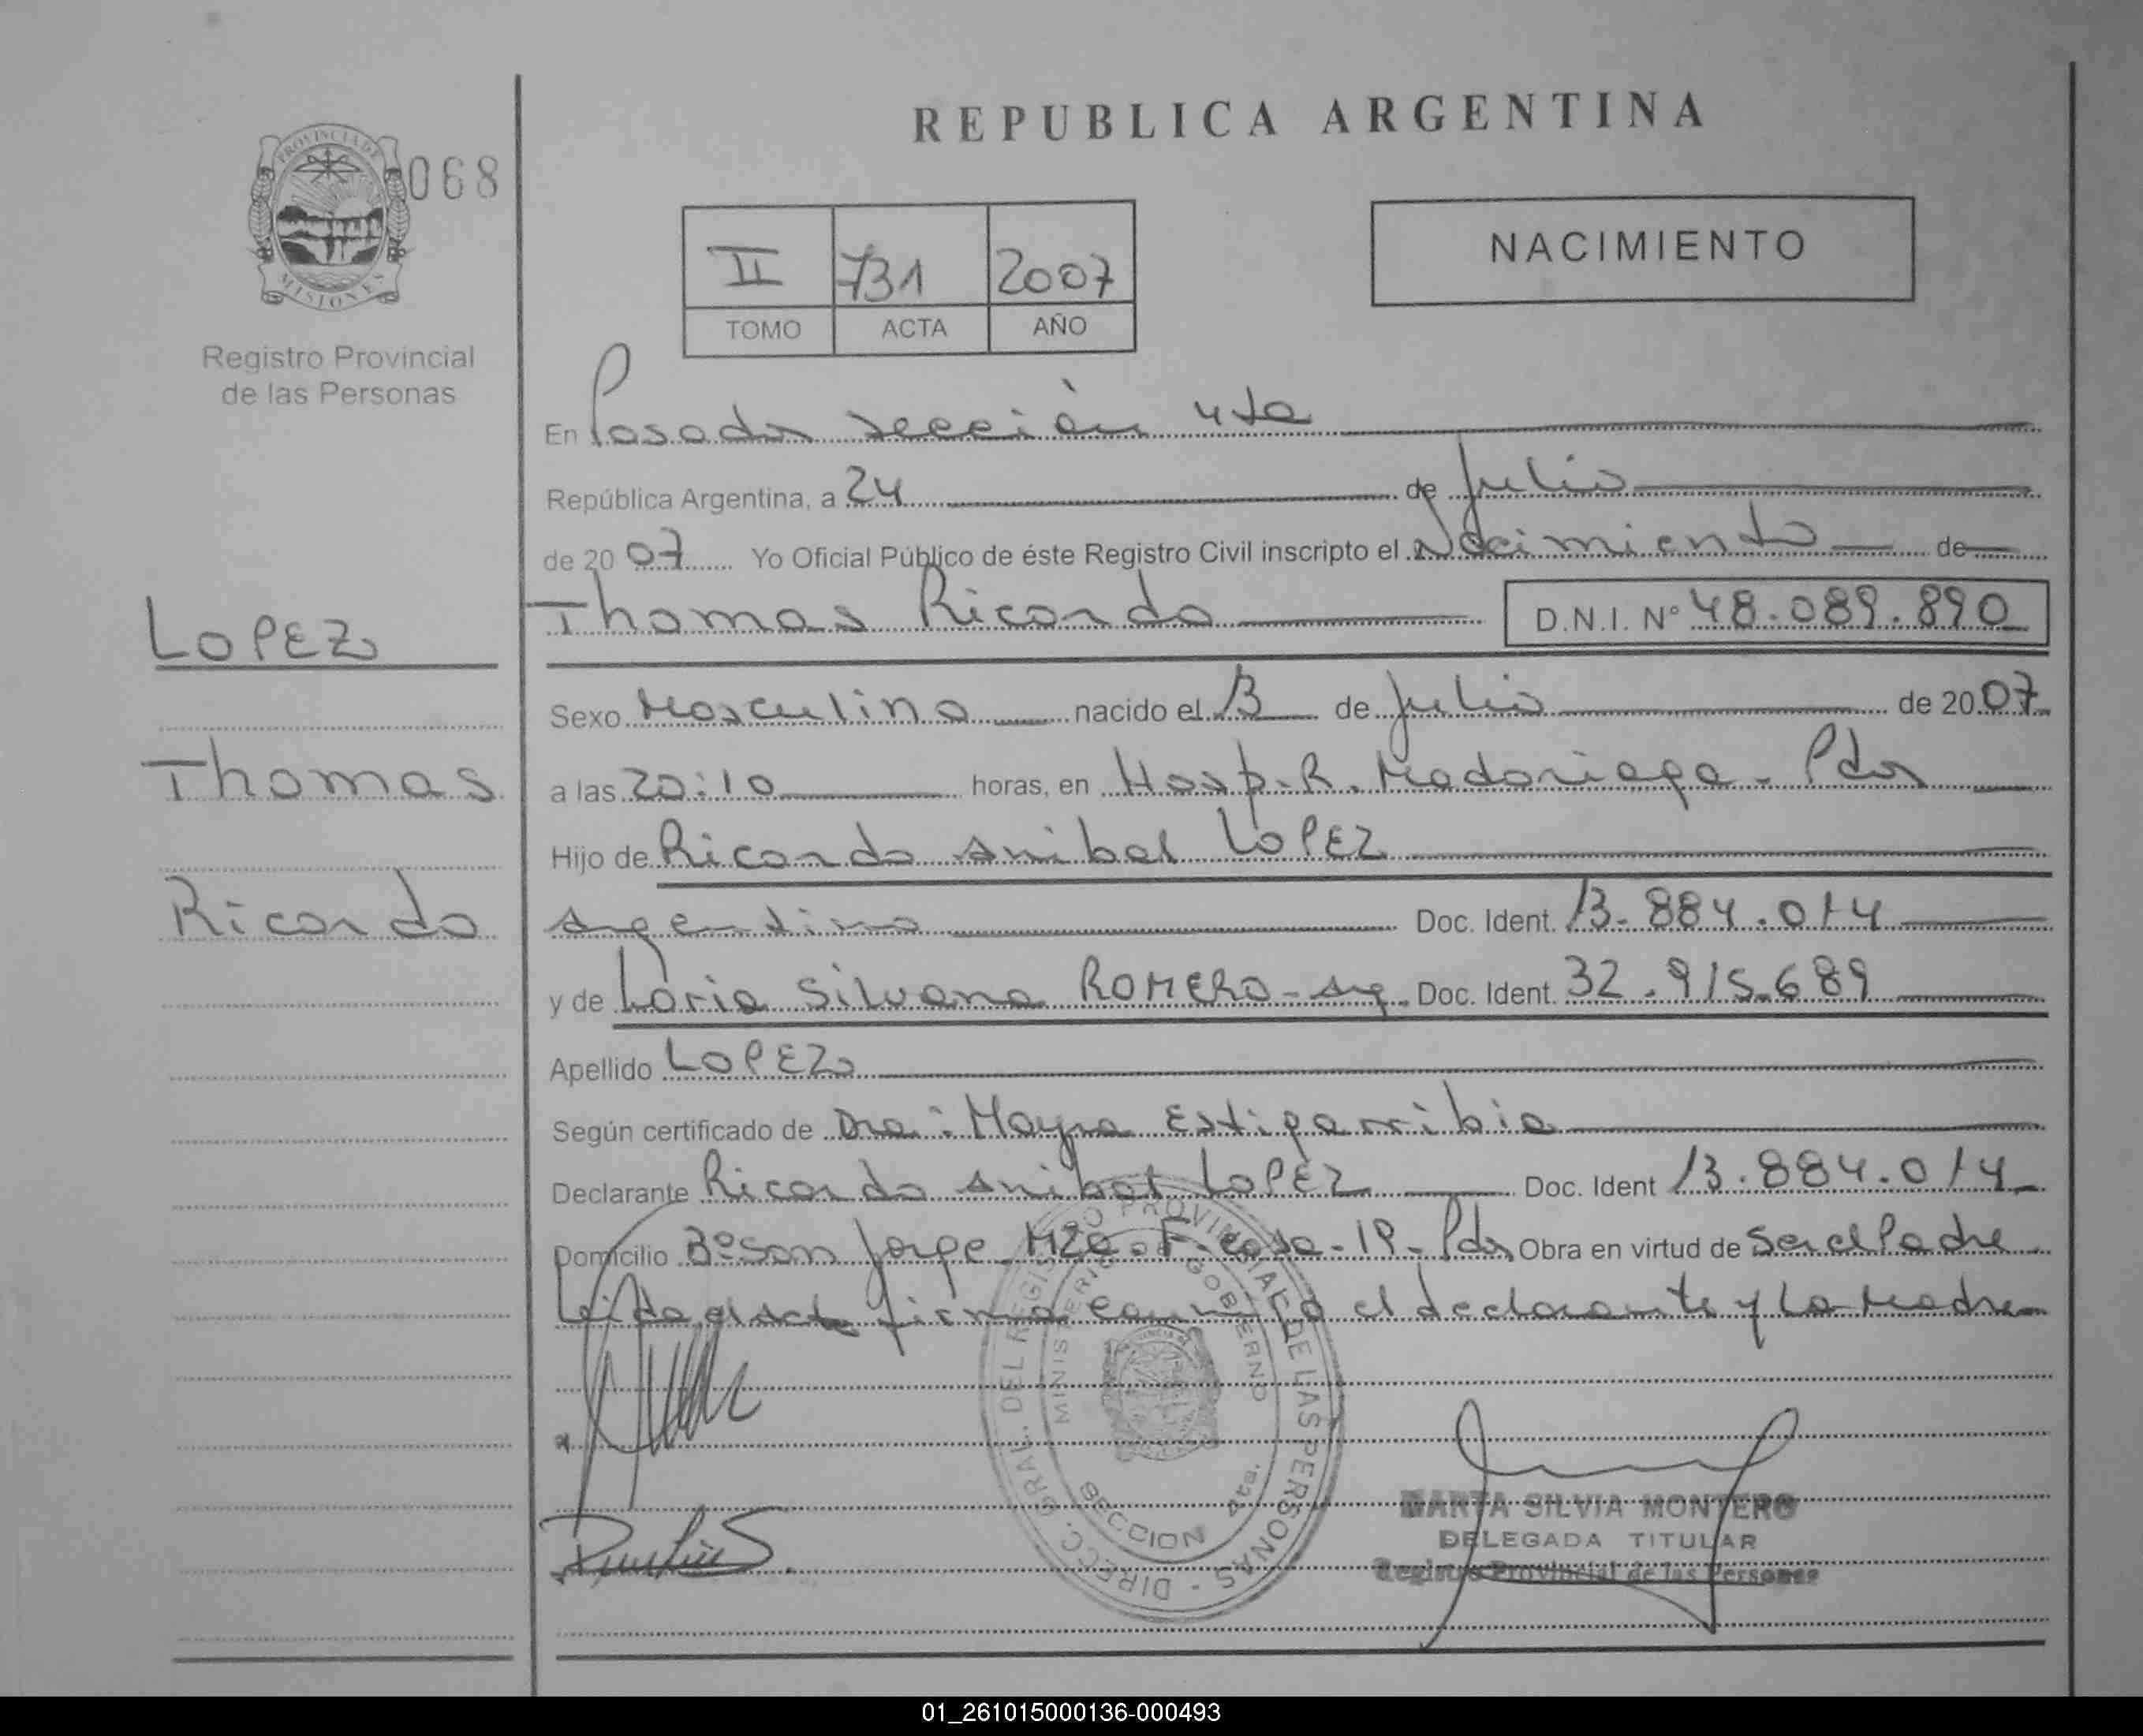 REPUBLICA ARGENTINA
PROVINCIA DE
MISIONES
068
Registro Provincial
de las Personas
II 731 2007
TOMO ACTA AÑO
NACIMIENTO
En Posadas sección 4ta
República Argentina, a 24 de Julio
de 2007 Yo Oficial Público de éste Registro Civil inscripto el Nacimiento de
Thomas Ricardo D.N.I. Nº 48.089.890
LOPEZ
Thomas
Ricardo
Sexo Masculino nacido el 13 de Julio de 2007
a las 20:10 horas, en Hosp. R. Madariaga - Pdas
Hijo de Ricardo Anibal LOPEZ
Argentino Doc. Ident. 13.884.014
y de Silvana ROMERO - Arg. Doc. Ident. 32.915.689
Apellido LOPEZ
Según certificado de Dra: Mayra Estigarribia
Declarante Ricardo Anibal LOPEZ Doc. Ident 13.884.014
Domicilio Bº San Jorge Mza. F. casa - 19 - Pdas Obra en virtud de Ser el Padre
Leída el acta firma conmigo el declarante y la Madre
DIRECC. GRAL. DEL REGISTRO PROVINCIAL DE LAS PERSONAS
MINISTERIO DE GOBIERNO
SECCION 4ta.
MARTA SILVIA MONTERO
DELEGADA TITULAR
Registro Provincial de las Personas
01_261015000136-000493